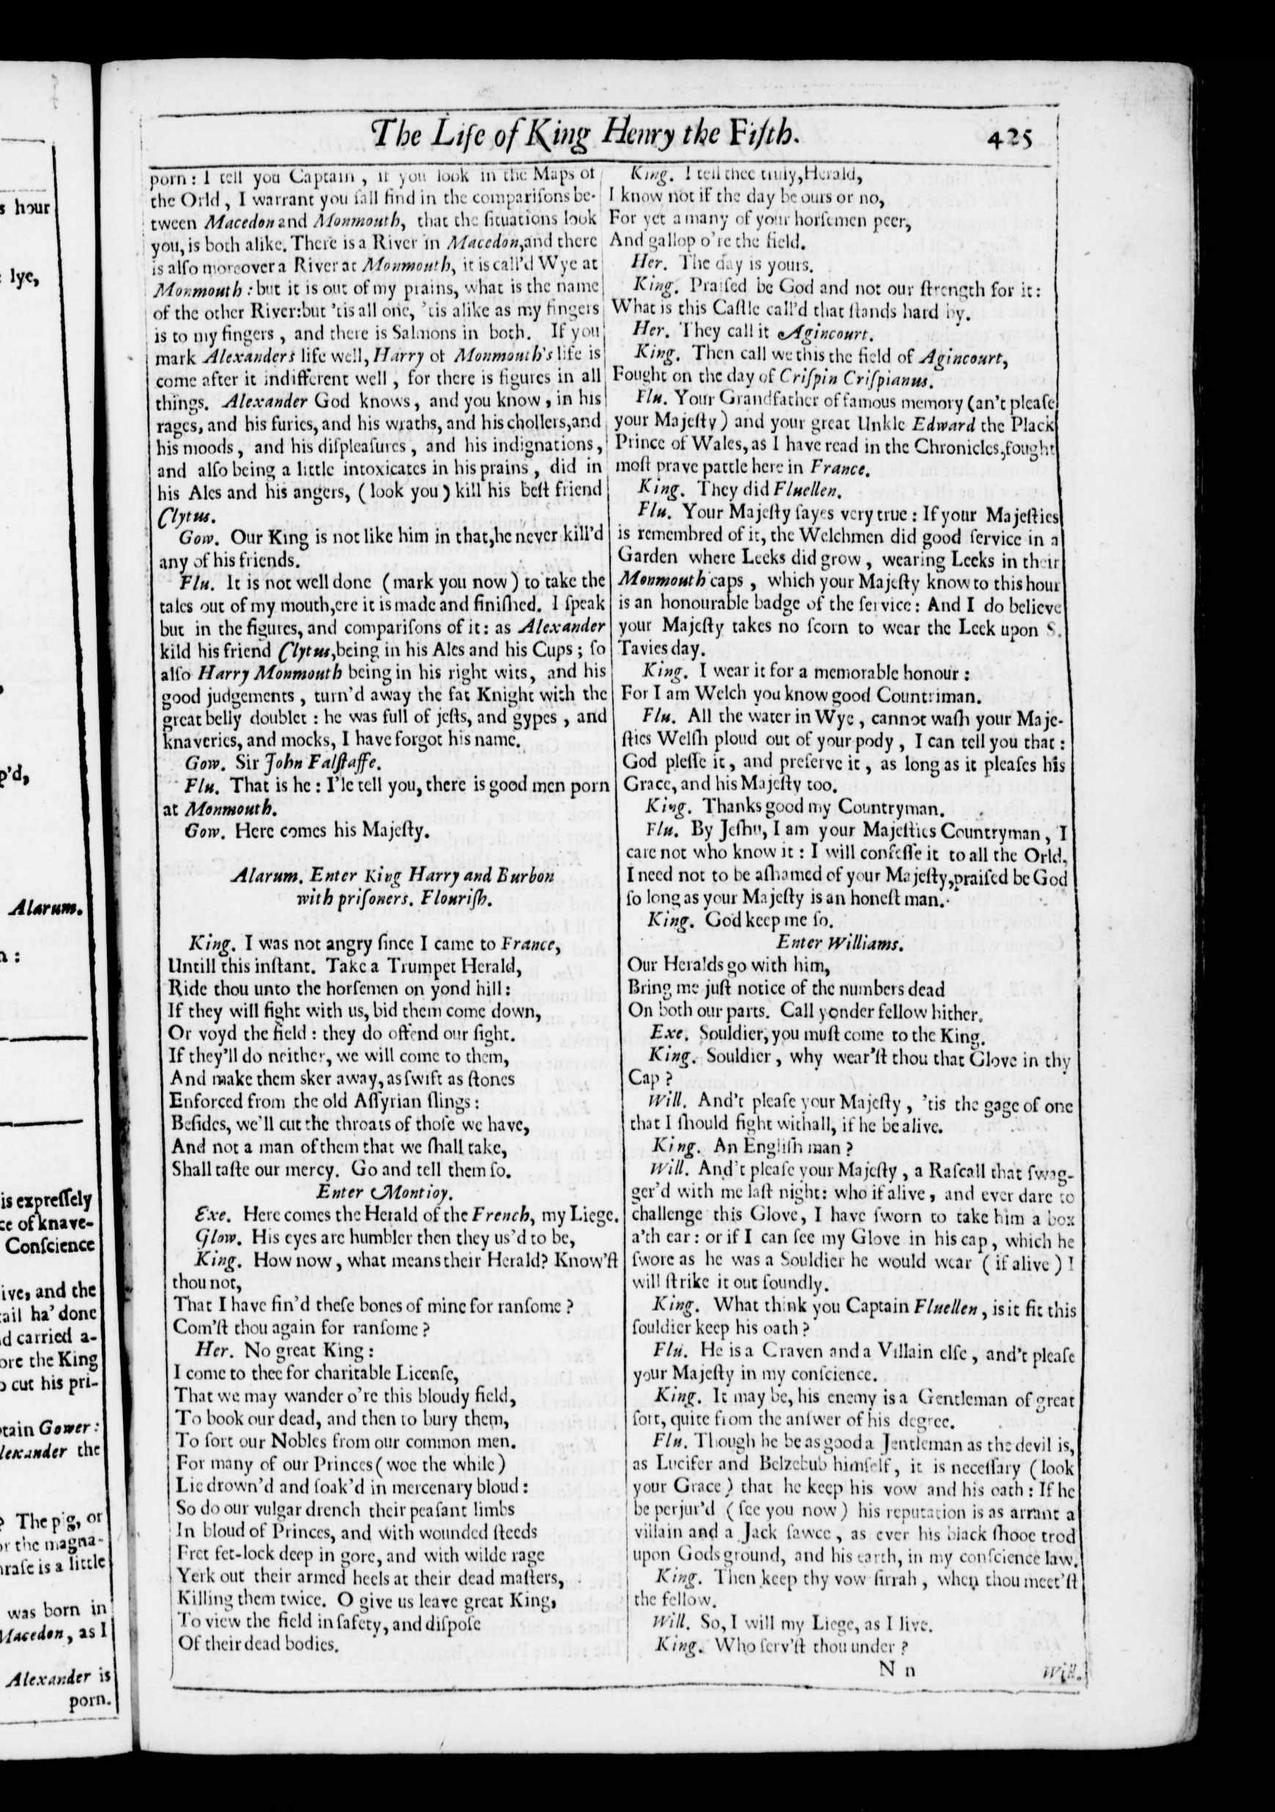 s hour
lye,
p'd,
Alarum.
n :
is expreſſely
ce of knave-
Conſcience
ive, and the
tail ha' done
d carried a-
ore the King
o cut his pri-
tain Gower:
lexander the
? The pig, or
or the magna-
hraſe is a little
was born in
Macedon, as I
Alexander is
porn.
The Life of King Henry the Fifth. 425
porn: I tell you Captain, if you look in the Maps of
the Orld, I warrant you ſall find in the compariſons be-
tween Macedon and Monmouth, that the ſituations look
you, is both alike. There is a River in Macedon, and there
is alſo moreover a River at Monmouth, it is call'd Wye at
Monmouth: but it is out of my prains, what is the name
of the other River: but 'tis all one, 'tis alike as my fingers
is to my fingers, and there is Salmons in both. If you
mark Alexanders life well, Harry of Monmouth's life is
come after it indifferent well, for there is figures in all
things. Alexander God knows, and you know, in his
rages, and his furies, and his wraths, and his chollers, and
his moods, and his diſpleaſures, and his indignations,
and alſo being a little intoxicates in his prains, did in
his Ales and his angers, (look you) kill his beſt friend
Clytus.
Gow. Our King is not like him in that, he never kill'd
any of his friends.
Flu. It is not well done (mark you now) to take the
tales out of my mouth, ere it is made and finiſhed. I ſpeak
but in the figures, and compariſons of it: as Alexander
kild his friend Clytus, being in his Ales and his Cups; ſo
alſo Harry Monmouth being in his right wits, and his
good judgements, turn'd away the fat Knight with the
great belly doublet: he was full of jeſts, and gypes, and
knaveries, and mocks, I have forgot his name.
Gow. Sir John Falſtaffe.
Flu. That is he: I'le tell you, there is good men porn
at Monmouth.
Gow. Here comes his Majeſty.
Alarum. Enter King Harry and Burbon
with priſoners. Flouriſh.
King. I was not angry ſince I came to France,
Untill this inſtant. Take a Trumpet Herald,
Ride thou unto the horſemen on yond hill:
If they will fight with us, bid them come down,
Or voyd the field: they do offend our ſight.
If they'll do neither, we will come to them,
And make them sker away, as ſwift as ſtones
Enforced from the old Aſſyrian ſlings:
Beſides, we'll cut the throats of thoſe we have,
And not a man of them that we ſhall take,
Shall taſte our mercy. Go and tell them ſo.
Enter Montioy.
Exe. Here comes the Herald of the French, my Liege.
Glow. His eyes are humbler then they us'd to be,
King. How now, what means their Herald? Know'ſt
thou not,
That I have fin'd theſe bones of mine for ranſome?
Com'ſt thou again for ranſome?
Her. No great King:
I come to thee for charitable Licenſe,
That we may wander o're this bloudy field,
To book our dead, and then to bury them,
To ſort our Nobles from our common men.
For many of our Princes (woe the while)
Lie drown'd and ſoak'd in mercenary bloud:
So do our vulgar drench their peaſant limbs
In bloud of Princes, and with wounded ſteeds
Fret fet-lock deep in gore, and with wilde rage
Yerk out their armed heels at their dead maſters,
Killing them twice. O give us leave great King,
To view the field in ſafety, and diſpoſe
Of their dead bodies.
King. I tell thee truly, Herald,
I know not if the day be ours or no,
For yet a many of your horſemen peer,
And gallop o're the field.
Her. The day is yours.
King. Praiſed be God and not our ſtrength for it:
What is this Caſtle call'd that ſtands hard by.
Her. They call it Agincourt.
King. Then call we this the field of Agincourt,
Fought on the day of Criſpin Criſpianus.
Flu. Your Grandfather of famous memory (an't pleaſe
your Majeſty) and your great Unkle Edward the Plack
Prince of Wales, as I have read in the Chronicles, fought
moſt prave pattle here in France.
King. They did Fluellen.
Flu. Your Majeſty ſayes very true: If your Majeſties
is remembred of it, the Welchmen did good ſervice in a
Garden where Leeks did grow, wearing Leeks in their
Monmouth caps, which your Majeſty know to this hour
is an honourable badge of the ſervice: And I do believe
your Majeſty takes no ſcorn to wear the Leek upon S.
Tavies day.
King. I wear it for a memorable honour:
For I am Welch you know good Countriman.
Flu. All the water in Wye, cannot waſh your Maje-
ſties Welſh ploud out of your pody, I can tell you that:
God pleſſe it, and preſerve it, as long as it pleaſes his
Grace, and his Majeſty too.
King. Thanks good my Countryman.
Flu. By Jeſhu, I am your Majeſties Countryman, I
care not who know it: I will confeſſe it to all the Orld,
I need not to be aſhamed of your Majeſty, praiſed be God
ſo long as your Majeſty is an honeſt man.
King. God keep me ſo.
Enter Williams.
Our Heralds go with him,
Bring me juſt notice of the numbers dead
On both our parts. Call yonder fellow hither.
Exe. Souldier, you muſt come to the King.
King. Souldier, why wear'ſt thou that Glove in thy
Cap?
Will. And't pleaſe your Majeſty, 'tis the gage of one
that I ſhould fight withall, if he be alive.
King. An Engliſh man?
Will. And't pleaſe your Majeſty, a Raſcall that ſwag-
ger'd with me laſt night: who if alive, and ever dare to
challenge this Glove, I have ſworn to take him a box
a'th ear: or if I can ſee my Glove in his cap, which he
ſwore as he was a Souldier he would wear (if alive) I
will ſtrike it out ſoundly.
King. What think you Captain Fluellen, is it fit this
ſouldier keep his oath?
Flu. He is a Craven and a Villain elſe, and't pleaſe
your Majeſty in my conſcience.
King. It may be, his enemy is a Gentleman of great
ſort, quite from the anſwer of his degree.
Flu. Though he be as good a Jentleman as the devil is,
as Lucifer and Belzebub himſelf, it is neceſſary (look
your Grace) that he keep his vow and his oath: If he
be perjur'd (ſee you now) his reputation is as arrant a
villain and a Jack ſawce, as ever his black ſhooe trod
upon Gods ground, and his earth, in my conſcience law.
King. Then keep thy vow ſirrah, when thou meet'ſt
the fellow.
Will. So, I will my Liege, as I live.
King. Who ſerv'ſt thou under?
N n Will.